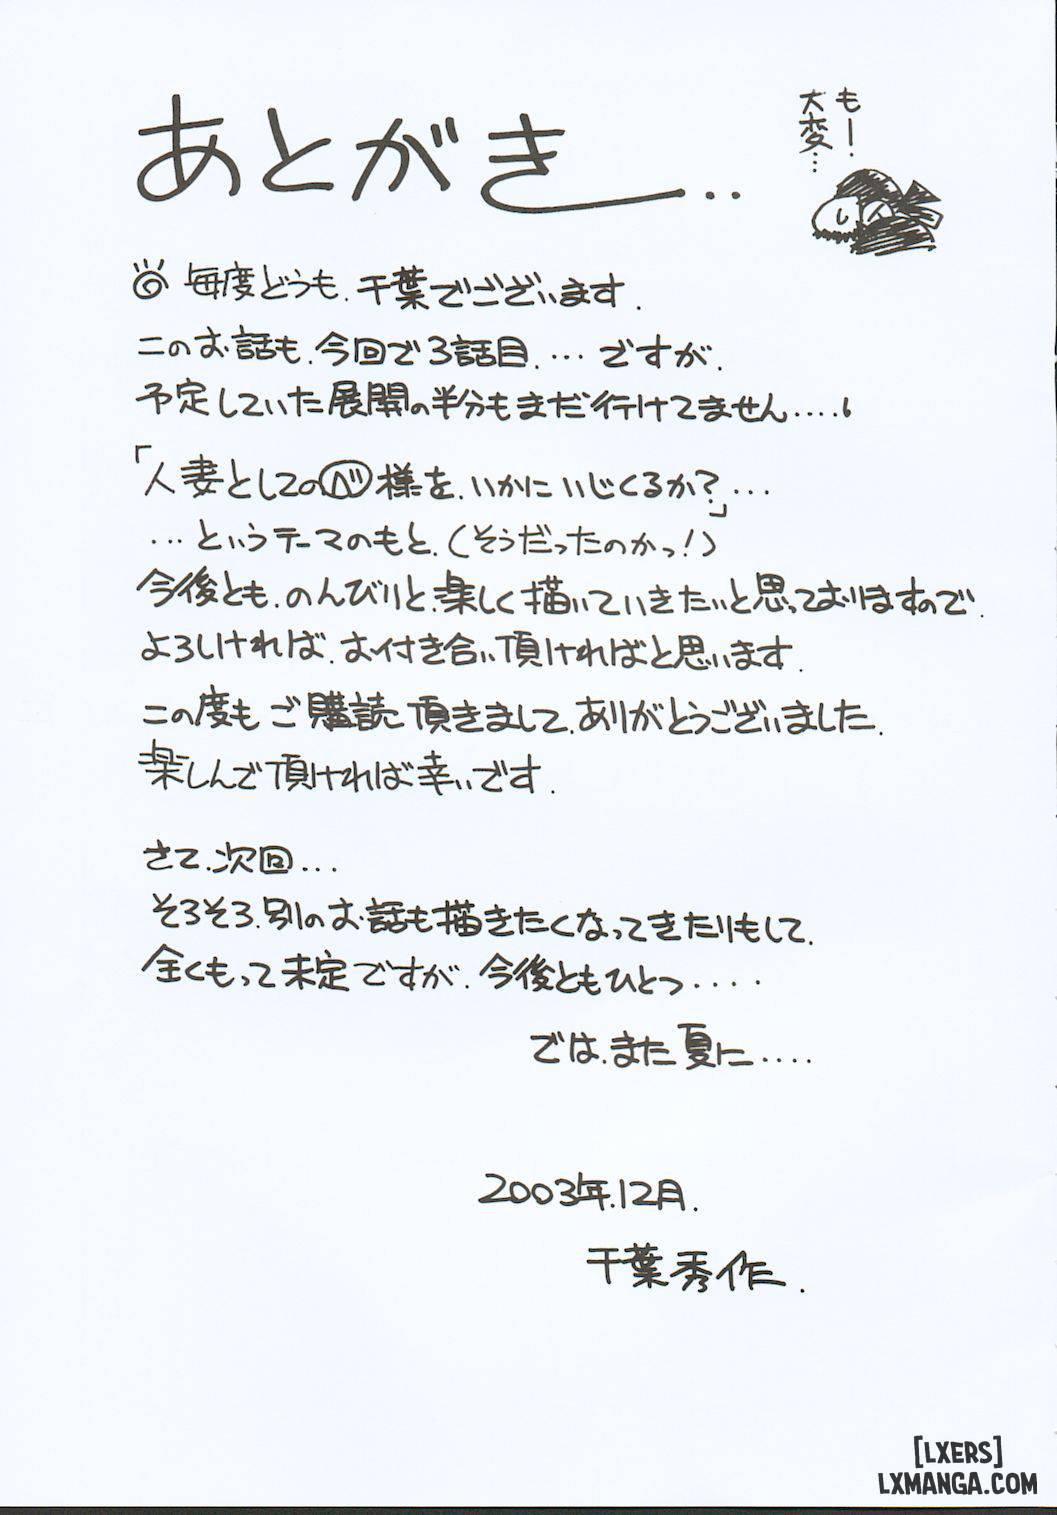 あとがき..
もー
大変…
◎ 毎度どうも.千葉でございます.
このお話も.今回で3話目.…ですが.
予定していた展開の半分もまだ行けてません....
「人妻としてのベ様を.いかにいじくるか?…」
…というテーマのもと.(そうだったのかっ!)
今後とも.のんびりと.楽しく描いていきたいと思っておりますので.
よろしければ.お付き合い頂ければと思います.
この度もご購読頂きまして.ありがとうございました.
楽しんで頂ければ幸いです.
さて.次回...
そろそろ.別のお話も描きたくなってきたりもして.
全くもって未定ですが.今後ともひとつ....
では.また夏に....
2003年.12月.
千葉秀作.
[LXERS]
LXMANGA.COM